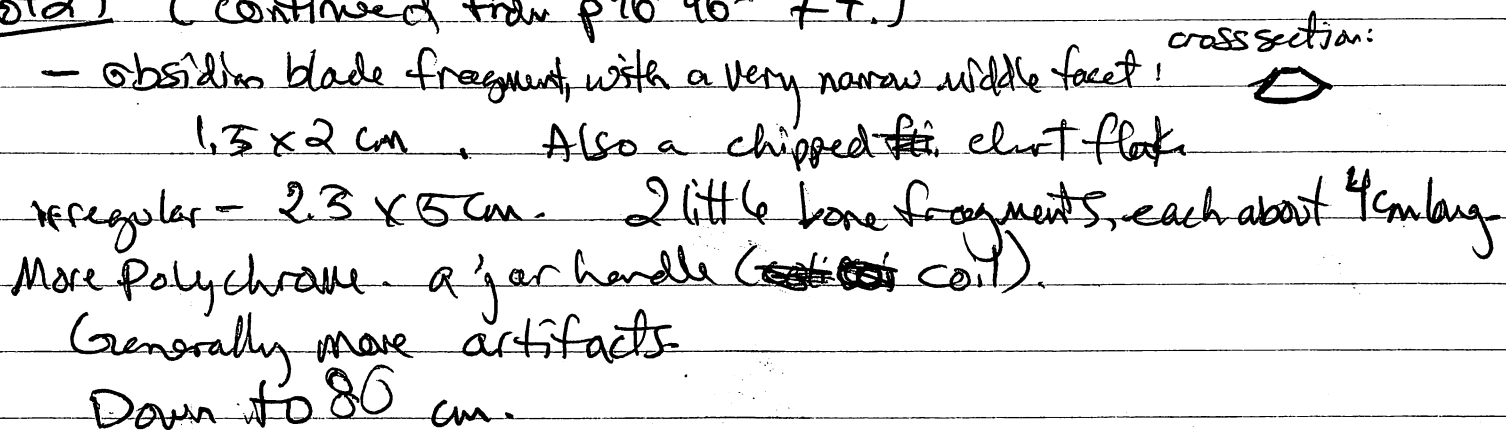 (Continued from p
cross section:
– obsidian blade fragment, with a very narrow middle facet!
1.5 x 2 cm. Also a chipped chert flake
irregular – 2.3 x 5 cm. 2 little bone fragments, each about 4 cm long.
More Polychrome. a jar handle (coil).
Generally more artifacts.
Down to 80 cm.